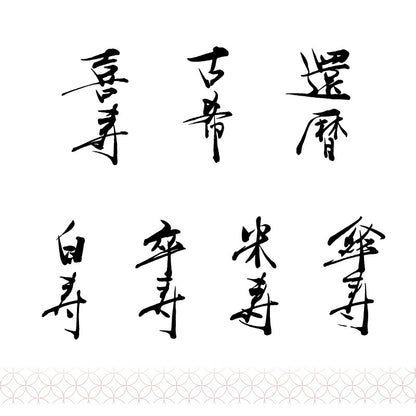 還暦
古希
喜寿
傘寿
米寿
卒寿
白寿